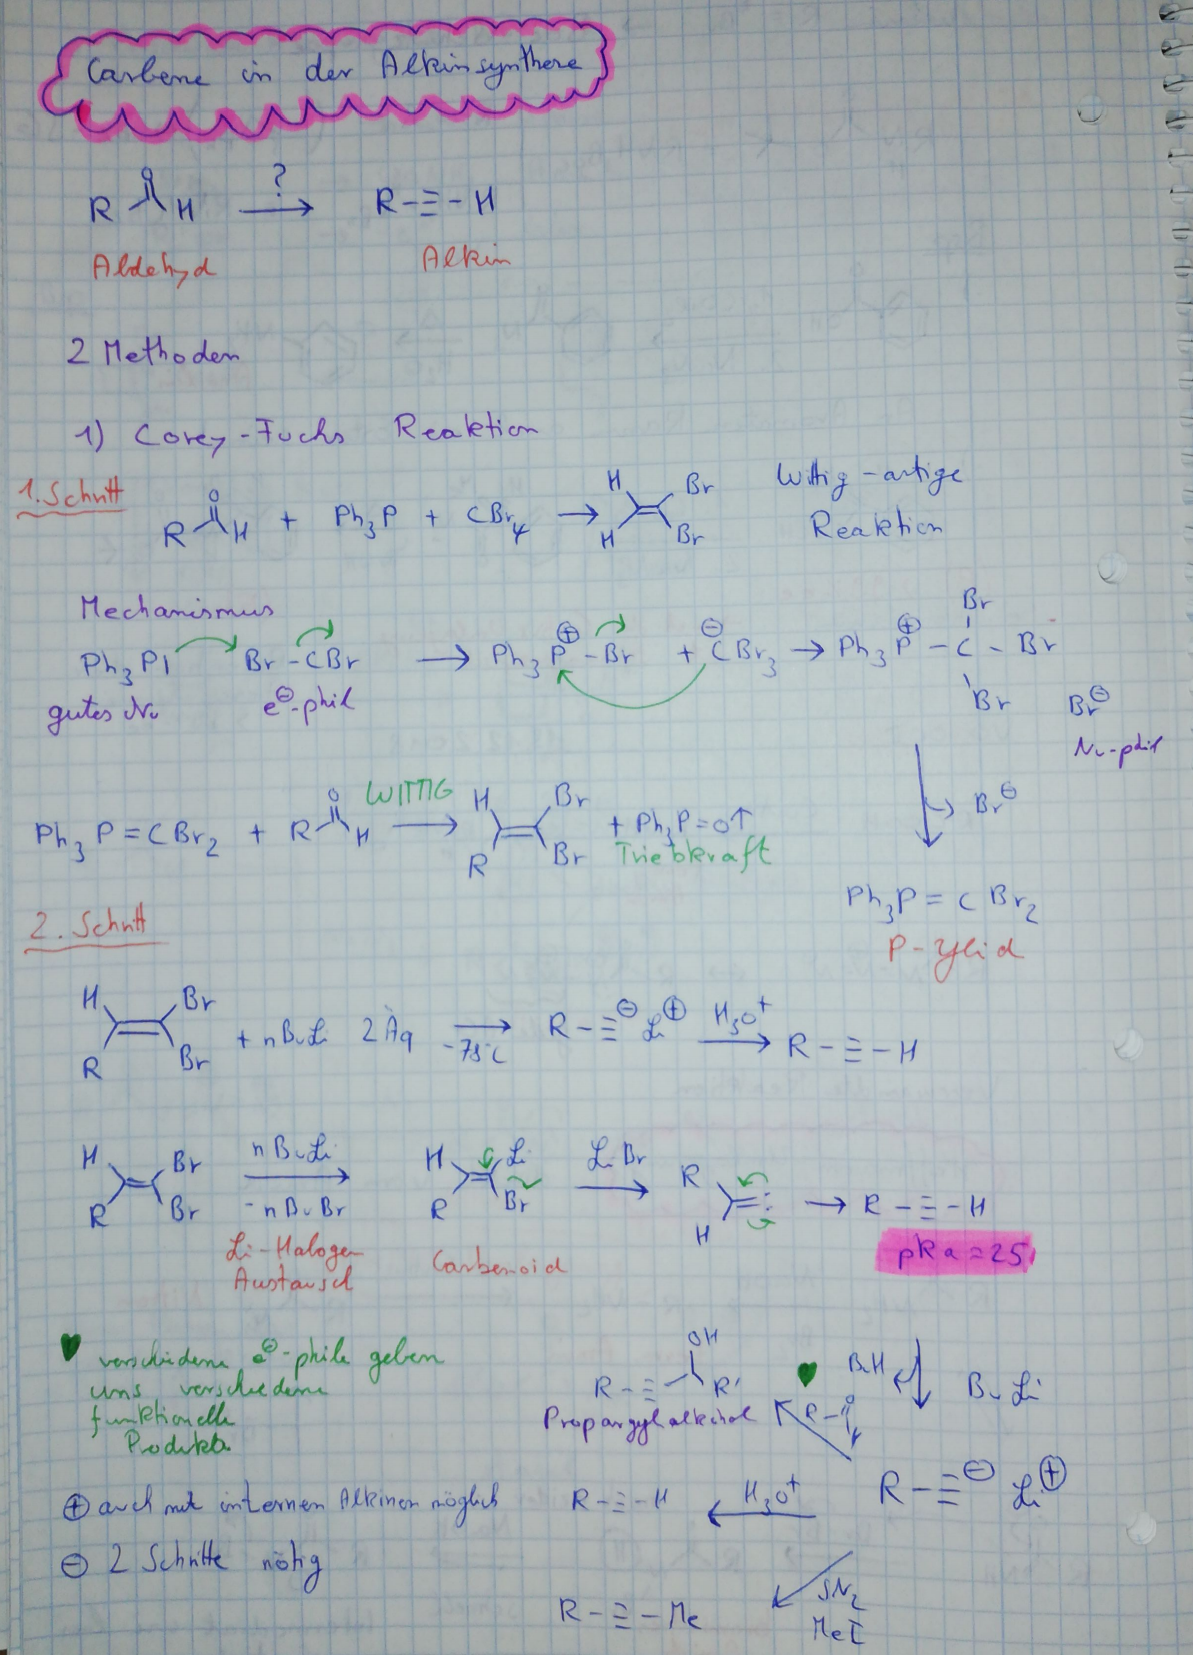 Carbene in der Alkinsynthese
R O H ? → R-≡-H
Aldehyd Alkin
2 Methoden
1) Corey-Fuchs Reaktion
1. Schritt
R O H + Ph3P + CBr4 → H H Br Br Wittig-artige Reaktion
Mechanismus
Ph3P| Br-CBr → Ph3P⊕-Br + ⊖CBr3 → Ph3P⊕-C-Br Br Br
gutes Nu e⊖-phil Br⊖
Nu-phil
Br⊖
Ph3P=CBr2 + R O H WITTIG → H R Br Br + Ph3P=O↑
Triebkraft
Ph3P=CBr2
P-Ylid
2. Schritt
H R Br Br + nBuLi 2 Äq → -78°C R-≡⊖ Li⊕ H3O+ → R-≡-H
H R Br Br nBuLi → -nBuBr H R Li Br LiBr → R H : → R-≡-H
Li-Halogen Austausch Carbenoid pKa=25
♥ verschidene e⊖-phile geben
uns verschidene
funktionelle
Produkte
OH
R-≡- R' ♥ BuH BuLi
Propargylalkohol R- O
R-≡⊖ Li⊕
⊕ auch mit internen Alkinen möglich R-≡-H ← H3O+
⊖ 2 Schritte nötig
R-≡-Me SN2
MeI